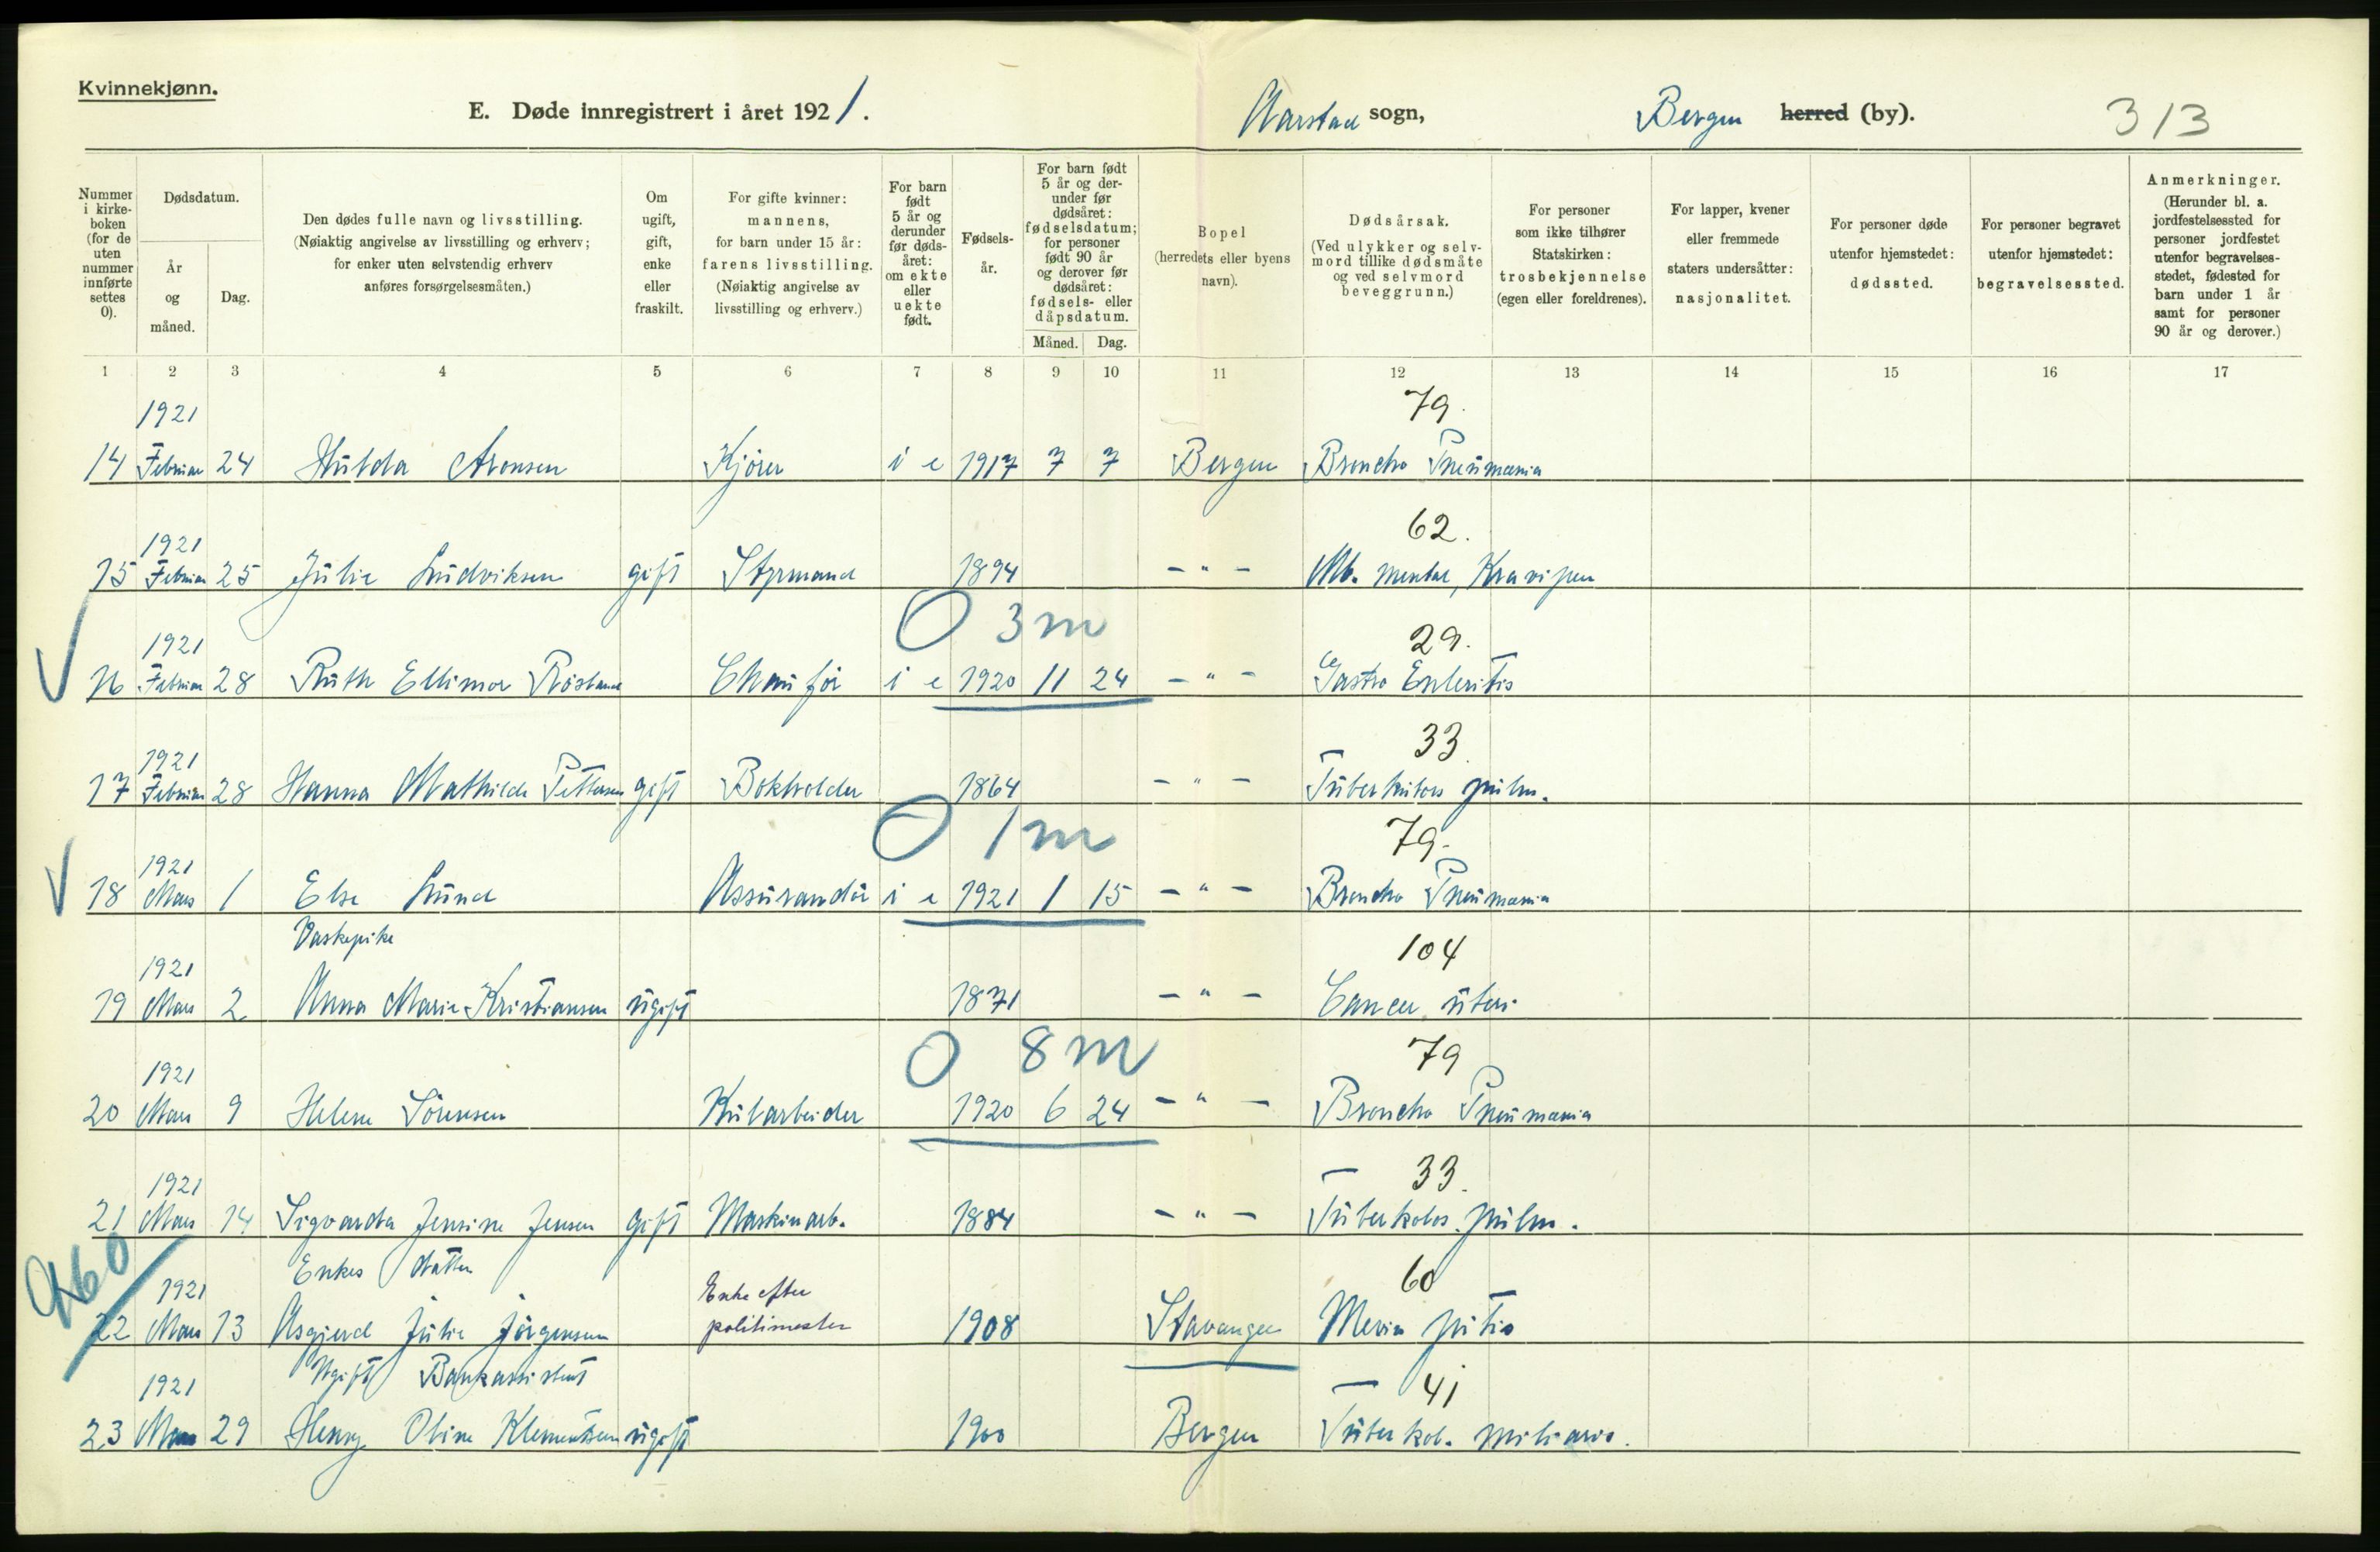 Kvinnekjønn.
E. Døde innregistrert i året 1921.
Aarstad sogn,
Bergen herred (by).
313
Nummer i kirkeboken (for de uten nummer innførte settes 0).
Dødsdatum.
År og måned.
Dag.
Den dødes fulle navn og livsstilling.
(Nøiaktig angivelse av livsstilling og erhverv; for enker uten selvstendig erhverv anføres forsørgelsesmåten.)
Om ugift, gift, enke eller fraskilt.
For gifte kvinner: mannens, for barn under 15 år: farens livsstilling.
(Nøiaktig angivelse av livsstilling og erhverv.)
For barn født 5 år og derunder før dødsåret: om ekte eller uekte født.
Fødselsår.
For barn født 5 år og derunder før dødsåret: fødselsdatum; for personer født 90 år og derover før dødsåret: fødsels- eller dåpsdatum.
Måned.
Dag.
Bopel (herredets eller byens navn).
Dødsårsak.
(Ved ulykker og selvmord tillike dødsmåte og ved selvmord beveggrunn.)
For personer som ikke tilhører Statskirken: trosbekjennelse (egen eller foreldrenes).
For lapper, kvener eller fremmede staters undersåtter: nasjonalitet.
For personer døde utenfor hjemstedet: dødssted.
For personer begravet utenfor hjemstedet: begravelsessted.
Anmerkninger.
(Herunder bl. a. jordfestelsessted for personer jordfestet utenfor begravelsesstedet, fødested for barn under 1 år samt for personer 90 år og derover.)
1 2 3 4 5 6 7 8 9 10 11 12 13 14 15 16 17
1921 79.
14 Februar 24 Hulda Aronsen Kjörer i e 1917 7 7 Bergen Broncho Pneumania
1921 62.
15 Februar 25 Julie Ludviksen gift Styrmand 1894 - " - Mb. mental,
O 3 m
1921 29.
16 Februar 28 Ruth Ellinor Chauför i e 1920 11 24 - " - Gastro Enteritis
1921 33
17 Februar 28 Hanna Mathilde Pettersen gift Bokholder 1864 - " - Tuberkulos pulm.
O 1 m
1921 79.
18 Mars 1 Else Lund Assurandör i e 1921 1 15 - " - Broncho Pneumania
Vaskepike
1921 104
19 Mars 2 Anna Marie Kristiansen ugift 1871 - " - Cancer uteri
O 8 m
1921 79
20 Mars 9 Helene Sörensen Kularbeider 1920 6 24 - " - Broncho Pneumania
1921 33.
21 Mars 14 Sigvarda Jensine Jensen gift Maskinarb. 1884 - " - Tuberkolos. pulm.
Enkes datter
Enke efter
1921 60
22 Mars 13 Asgjerd Julie Jörgensen politimester 1908 Stavanger
Ugift Bankassistent
1921 41
23 Mars 29 Henny Oline Klementsen ugift 1900 Bergen Tuberkol. miliaris.